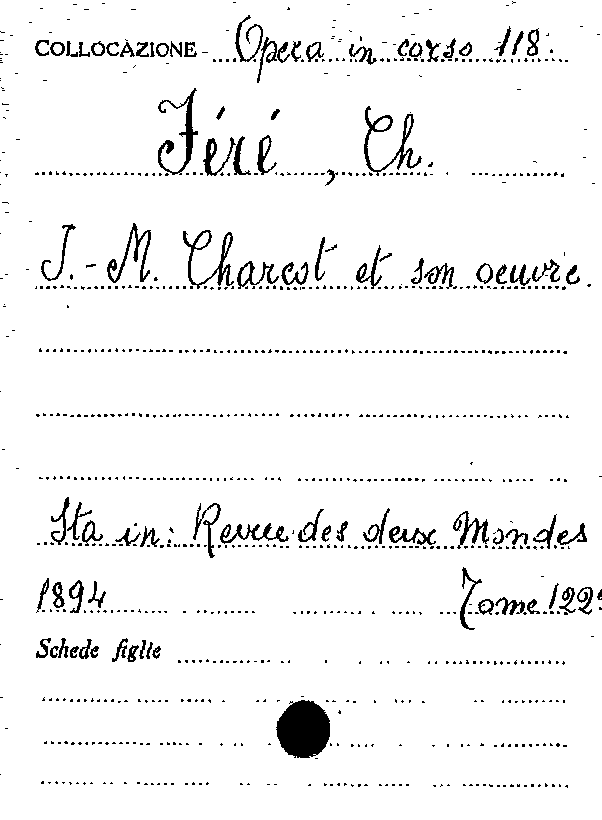 COLLOCAZIONE Opera in corso 118.
Féré, Ch.
J.-M. Charcot et son oeuvre.
Sta in: Revue des deux Mondes
1894 Tome 122
Schede figlie